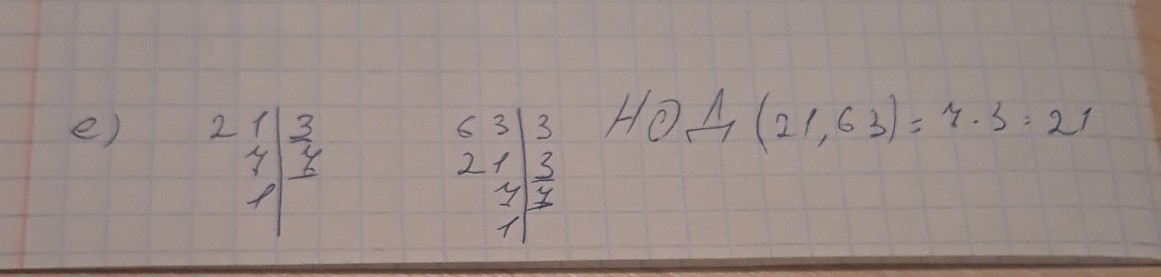 е) 21|3 63|3 НОД (21,63)=7·3=21
7|7 21|3
1| 7|7
1|